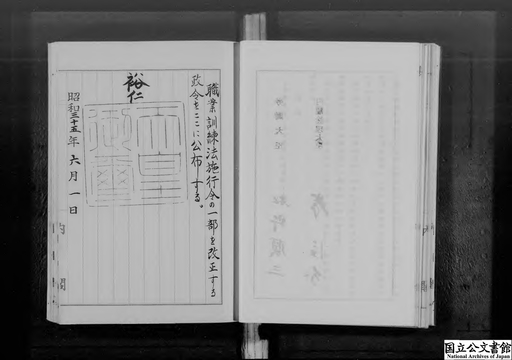 職業訓練法施行令の一部を改正する
政令をここに公布する。
裕仁
天皇
御璽
昭和三十五年六月一日
内閣
国立公文書館
National Archives of Japan